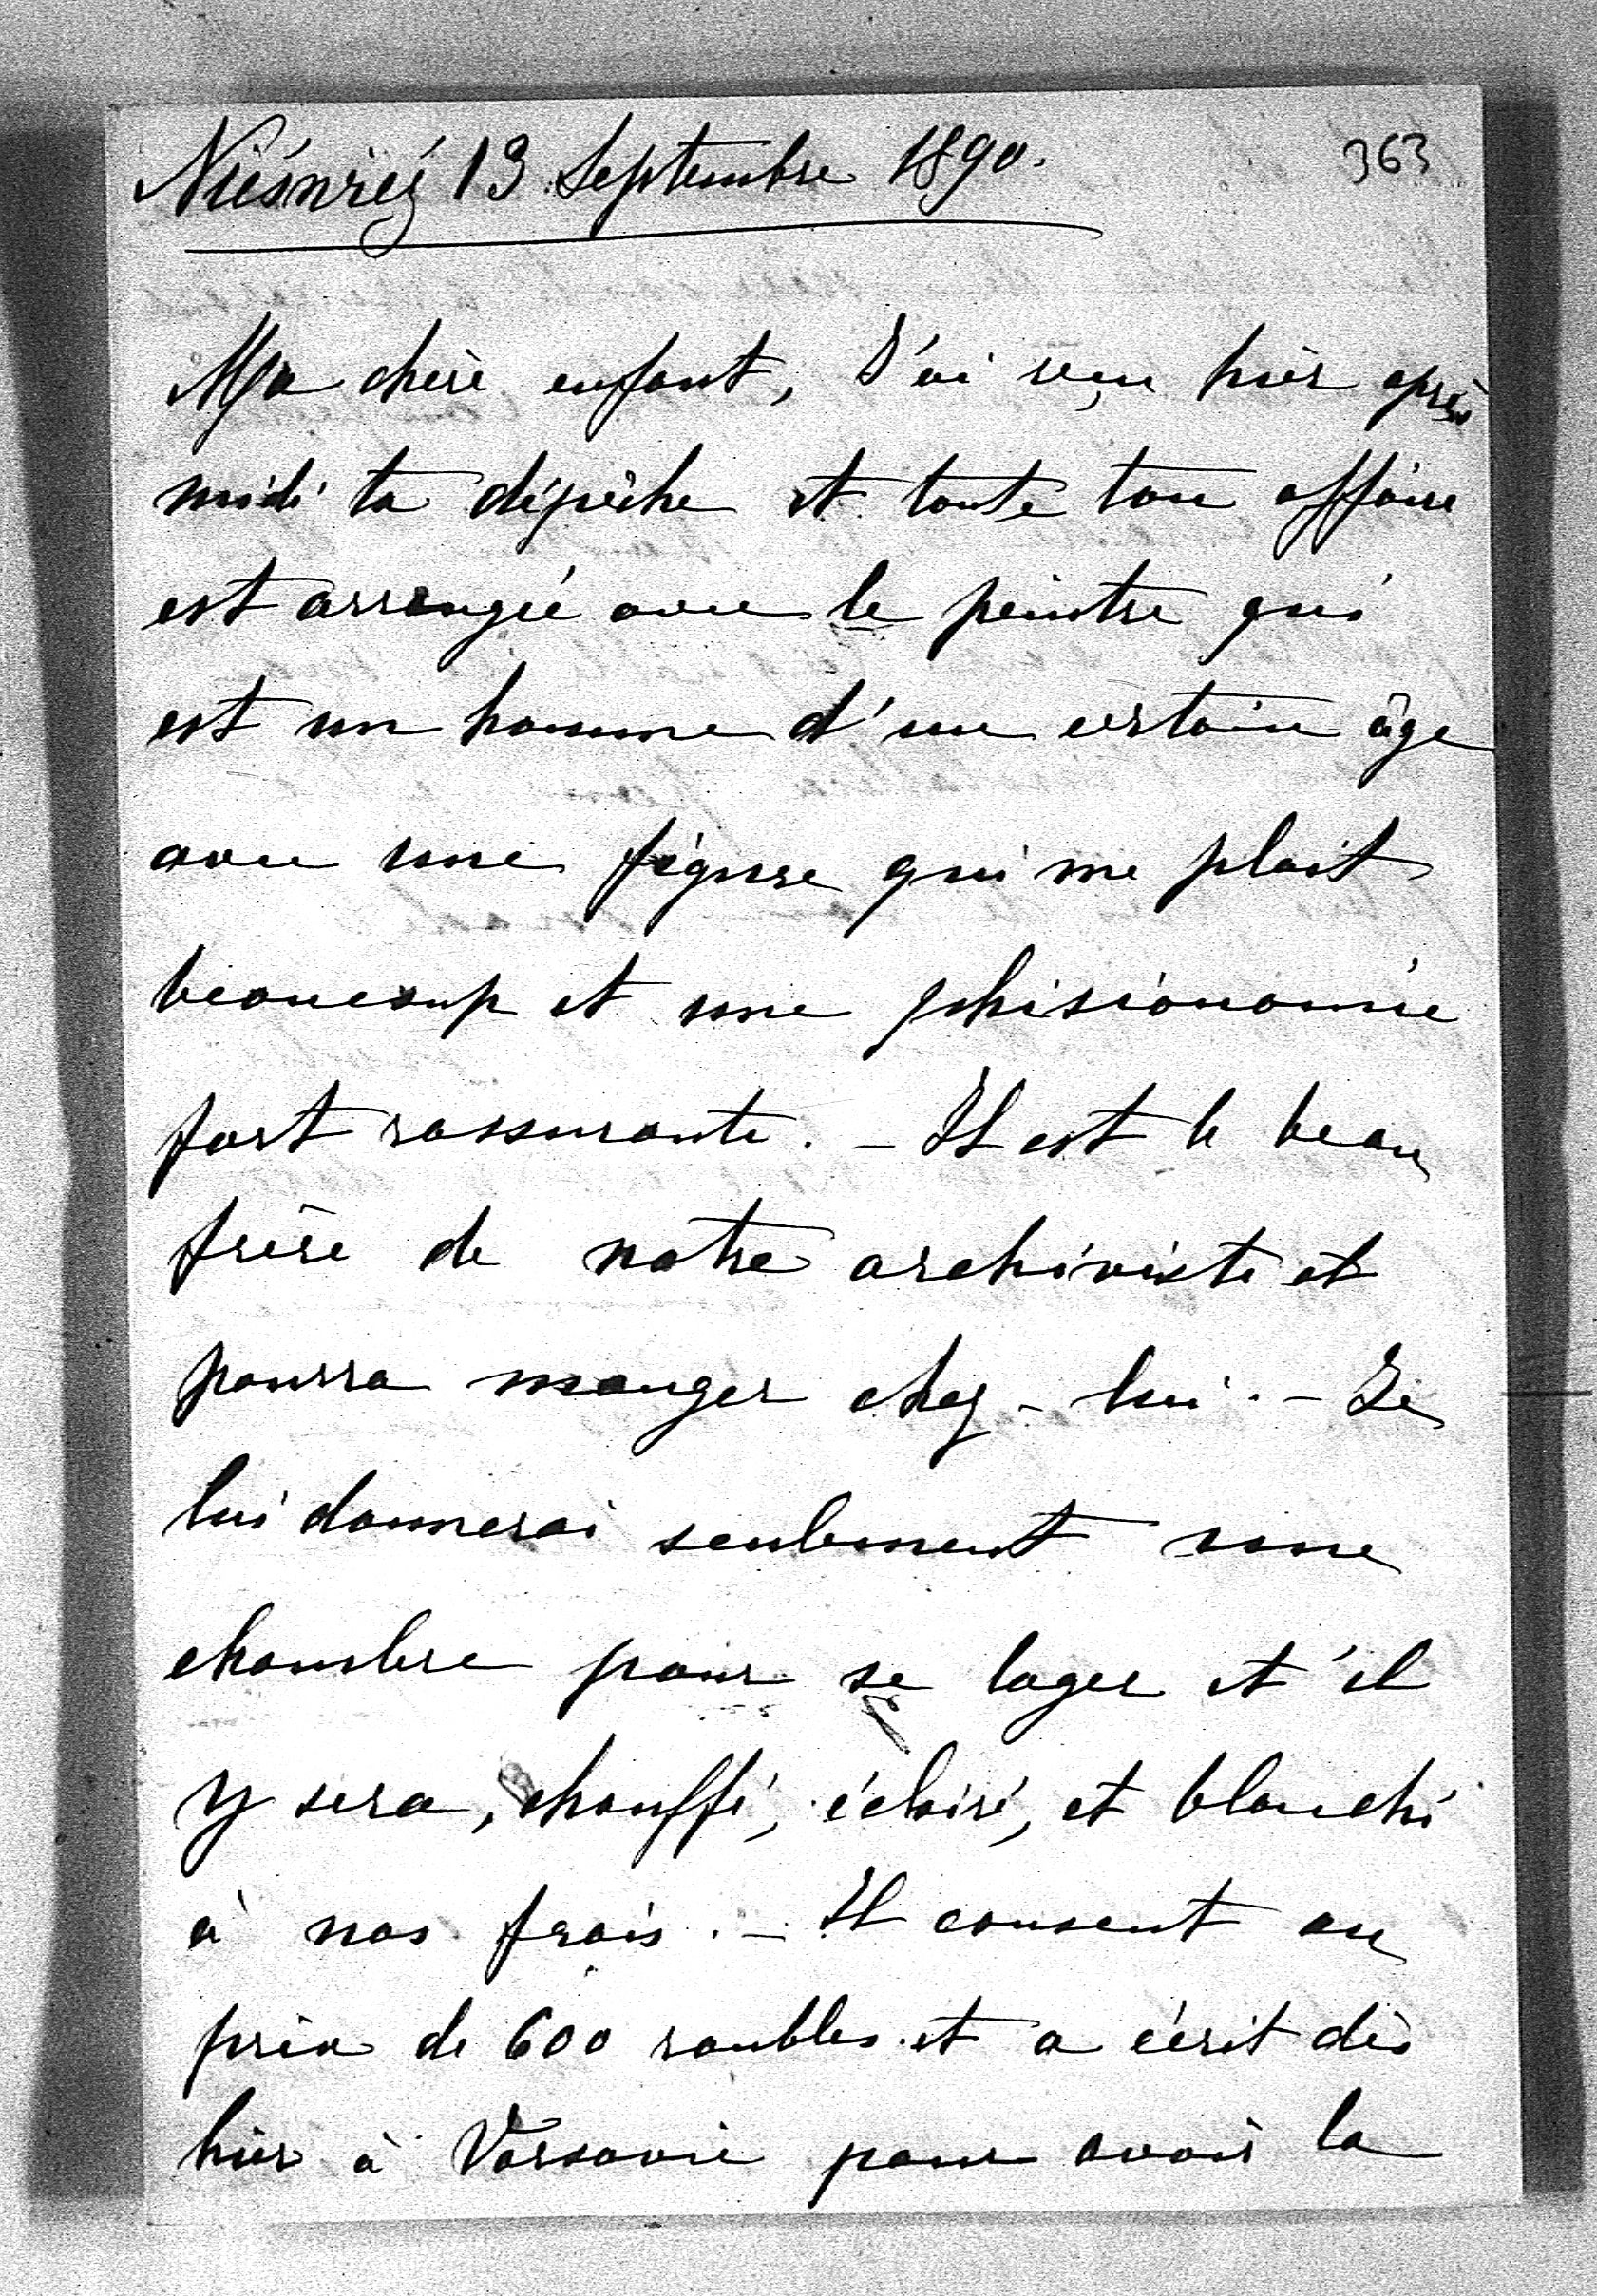 Niéśnież 13 Septembre 1890.
363
Ma chère enfant, J'ai reçu hièr après
midi ta dépèche et toute ton affaire
est arrangée avec le peintre qui
est un homme d'un certain âge
avec une figure qui me plait
beaucoup et une phisionomie
fort rassurante. - Il est le beau
frère de notre archiviste et
pourra manger chez - lui. - Je
lui donnerai seulement une
chambre pour se loger et il
y sera, chauffé, éclairé, et blanchi
à nos frais. - Il consent au
prix de 600 roubles et a écrit dès
hier à Varsovie pour avoir la